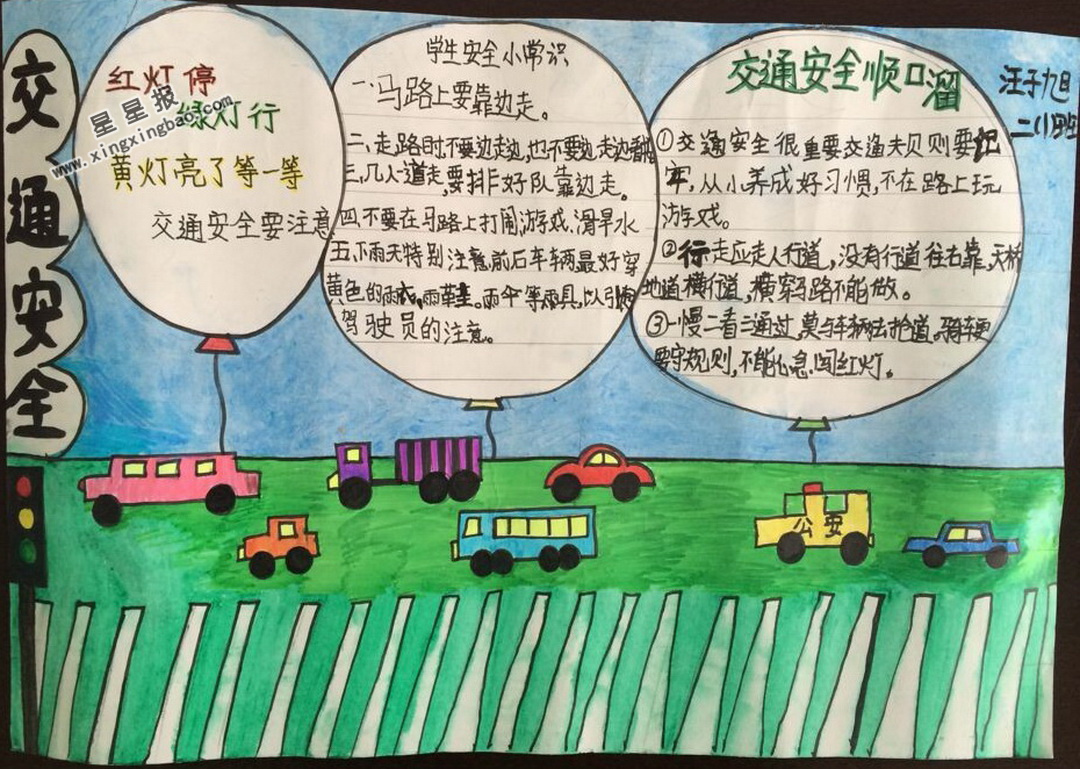 交通安全
红灯停
绿灯行
黄灯亮了等一等
交通安全要注意
星星报
www.xingxingbao.com
学生安全小常识
一、马路上要靠边走。
二、走路时,不要边走边,也不要边走边看
三,几人道走,要排好队靠边走。
四、不要在马路上打闹,游戏、滑旱水
五、下雨天特别注意,前后车车辆最好穿
黄色的雨衣,雨革里。雨伞等雨具,以引
驾驶员的注意。
交通安全顺口溜
①交通安全很重要交通夫贝则要记
牢,从小养成好习惯,不在路上玩
游戏。
②行走应走人行道,没有行道往右靠,天桥
地道横行道,横穿马路不能做。
③一慢二看三通过,莫与车辆去抢道。骑车更
要守规则,不能心急闯红灯。
汪子旭
二(1)班
公安